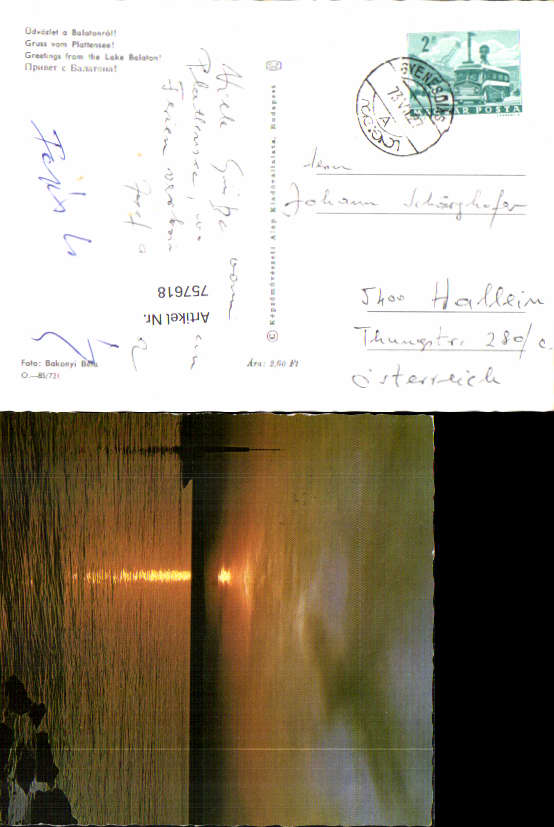 Üdvözlet a Balatonról!
Gruss vom Plattensee!
Greetings from the Lake Balaton!
Привет с Балатона!
Viele Grüße vom
Plattensee, 
Ferien
Josef
Artikel Nr.
757618
Foto: Bakonyi Béla
O.—85/731
Ára: 2,60 Ft
© Képzőművészeti Alap Kiadóvállalata, Budapest
2 Ft
MAGYAR POSTA
GYENESDIÁS
73 VI 27
A
Herrn
Johann Schörghofer
5400 Hallein
Thunngstr. 280/c
Österreich